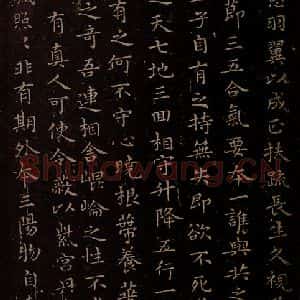 羽翼以成正扶疏長生久視
節三五合氣要本一誰與共之
子自有之持無失即欲不死
天七地三回相守升降五行一
有之何不守心曉根蔕養華
之奇吾連相合崐崘之性不
有真人可使令蔽以紫宮丹
照照非有期外本三陽物自
Shufawang.CN